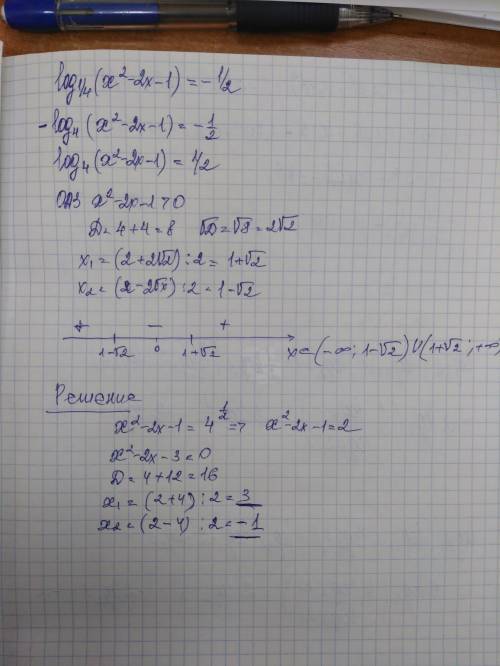 log₁/₄(x²-2x-1) = -1/2
-log₄(x²-2x-1) = -1/2
log₄(x²-2x-1) = 1/2
ОДЗ x²-2x-1>0
D=4+4=8 √D=√8=2√2
x₁=(2+2√2):2=1+√2
x₂=(2-2√x):2=1-√2
+ - +
1-√2 0 1+√2 x∈(-∞; 1-√2)∪(1+√2; +∞)
Решение
x²-2x-1=4^(1/2) => x²-2x-1=2
x²-2x-3=0
D=4+12=16
x₁=(2+4):2=3
x₂=(2-4):2=-1